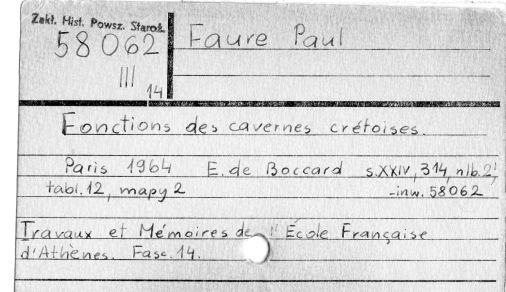 Zakł. Hist. Powsz. Staroż.
58062
III
14
Faure Paul
Fonctions des cavernes crétoises.
Paris 1964 E. de Boccard s.XXIV, 314, nlb. 2,
tabl. 12, mapy 2 -inw. 58062
Travaux et Mémoires de l'École Française
d'Athènes. Fasc. 14.